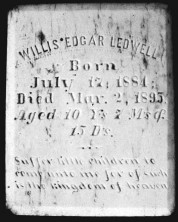 WILLIS EDGAR LEDWELL
Born
July 17, 1884.
Died Mar. 2, 1895.
Aged 10 Ys 7 Ms &
15 Ds.
Suffer little children to
come unto me for of such
is the kingdom of heaven